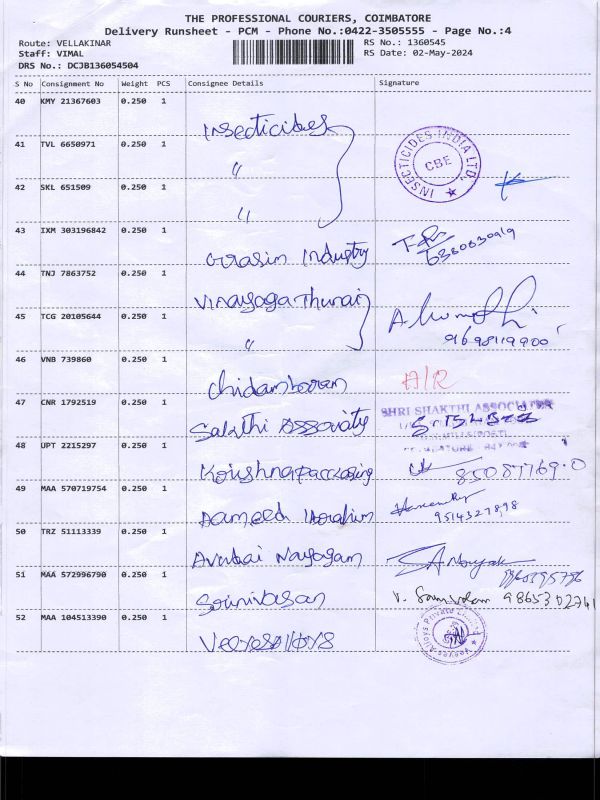 THE PROFESSIONAL COURIERS, COIMBATORE
Delivery Runsheet - PCM - Phone No.:0422-3505555 - Page No.:4
Route: VELLAKINAR
RS No.: 1360545
Staff: VIMAL
RS Date: 02-May-2024
DRS No.: DCJB136054504
S No Consignment No Weight PCS Consignee Details Signature
40 KMY 21367603 0.250 1 Insecticides
41 TVL 6650971 0.250 1 "
INSECTICIDES INDIA LTD. ★ CBE
42 SKL 651509 0.250 1 "
43 IXM 303196842 0.250 1 Grasim Industry
44 TNJ 7863752 0.250 1 Vinayaga Thurai
45 TCG 20105644 0.250 1 "
46 VNB 739860 0.250 1 Chidambaram A/R
47 CNR 1792519 0.250 1 Sakthi
SHRI SHAKTHI ASSOCIATES
48 UPT 2215297 0.250 1 Krishna packaging
49 MAA 570719754 0.250 1 Ibrahim
9514327898
50 TRZ 51113339 0.250 1 Nayagam
51 MAA 572996790 0.250 1 Srinivasan
9865302741
52 MAA 104513390 0.250 1
Alloys Private Limited ★